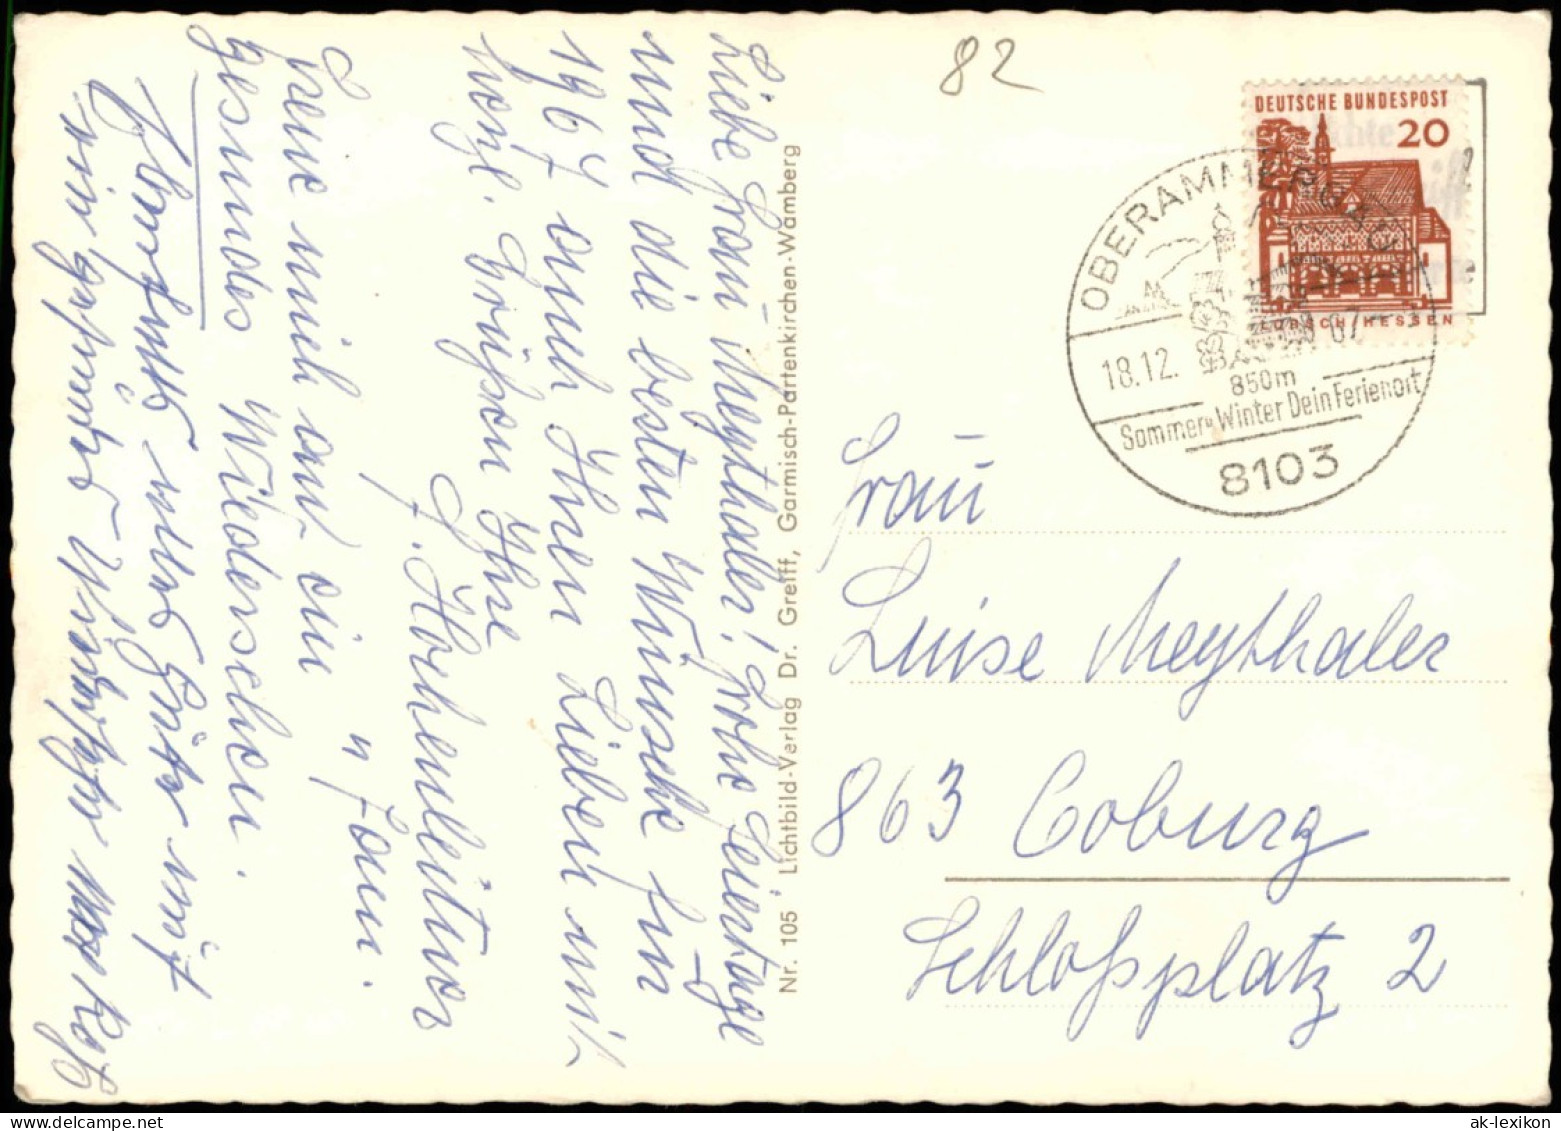 Liebe Frau Meythaler! Frohe Feiertage
und die besten Wünsche für
1967 auch Ihnen Lieben mit
herzl. Grüßen Ihre
J. Hohenleitner
u Fam.
Freue mich auf ein
gesundes Wiedersehen.
82
DEUTSCHE BUNDESPOST
20
LORSCH HESSEN
OBERAMMERGAU
18.12.
850m
Sommer u Winter Dein Ferienort
8103
Frau
Luise Meythaler
863 Coburg
Schloßplatz 2
Nr. 105 Lichtbild-Verlag Dr. Greiff, Garmisch-Partenkirchen-Wamberg
ak-lexikon.com